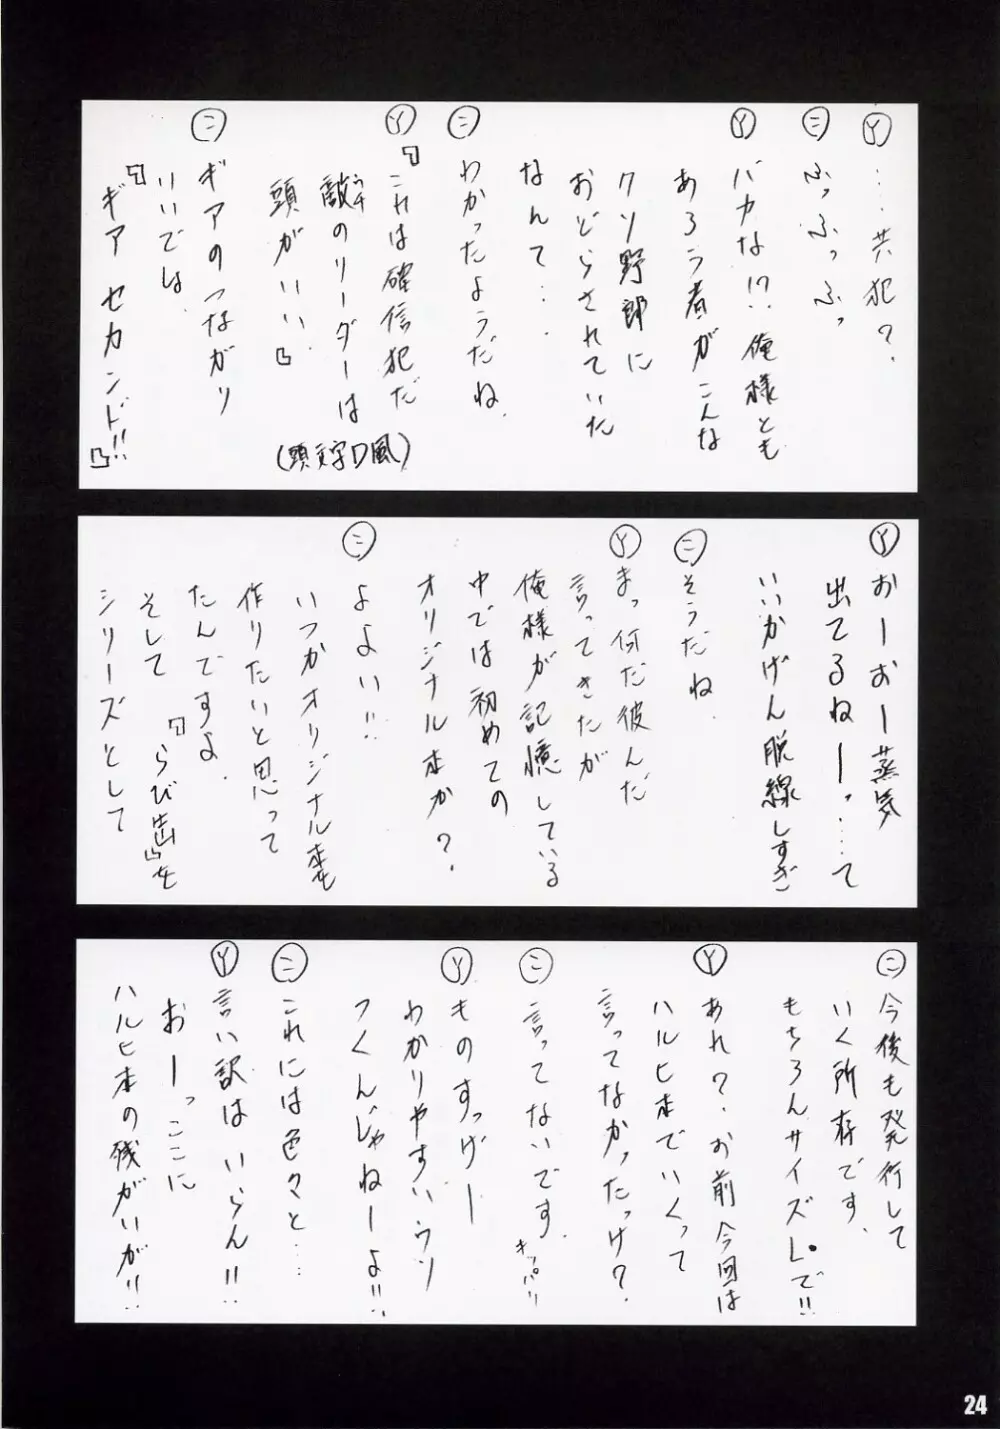 Ⓨ …共犯？
㊁ ふっふっふっ
Ⓨ バカな!? 俺様とも
あろう者がこんな
クソ野郎に
おどらされていた
なんて…
㊁ わかったようだね
Ⓨ 『これは確信犯だ
敵のリーダーは
頭がいい』
(頭文字D風)
㊁ ギアのつながり
いいでは
『ギア セカンド!!』
Ⓨ おーおー蒸気
出てるねーっ…て
いいかげん脱線しすぎ
㊁ そうだね
Ⓨ まっ何だ彼んだ
言ってきたが
俺様が記憶している
中では初めての
オリジナル本か？
㊁ よよい!!
いつかオリジナル本を
作りたいと思って
たんですよ
そして『らび出』を
シリーズとして
㊁ 今後も発行して
いく所存です
もちろんサイズLで!!
Ⓨ あれ？お前今回は
ハルヒ本でいくって
言ってなかったっけ？
㊁ 言ってないです
キッパリ
Ⓨ ものすっげー
わかりやすいウソ
つくんじゃねーよ!!
㊁ これには色々と…
Ⓨ 言い訳はいらん!!
おーっここに
ハルヒ本の残がいが!!
24